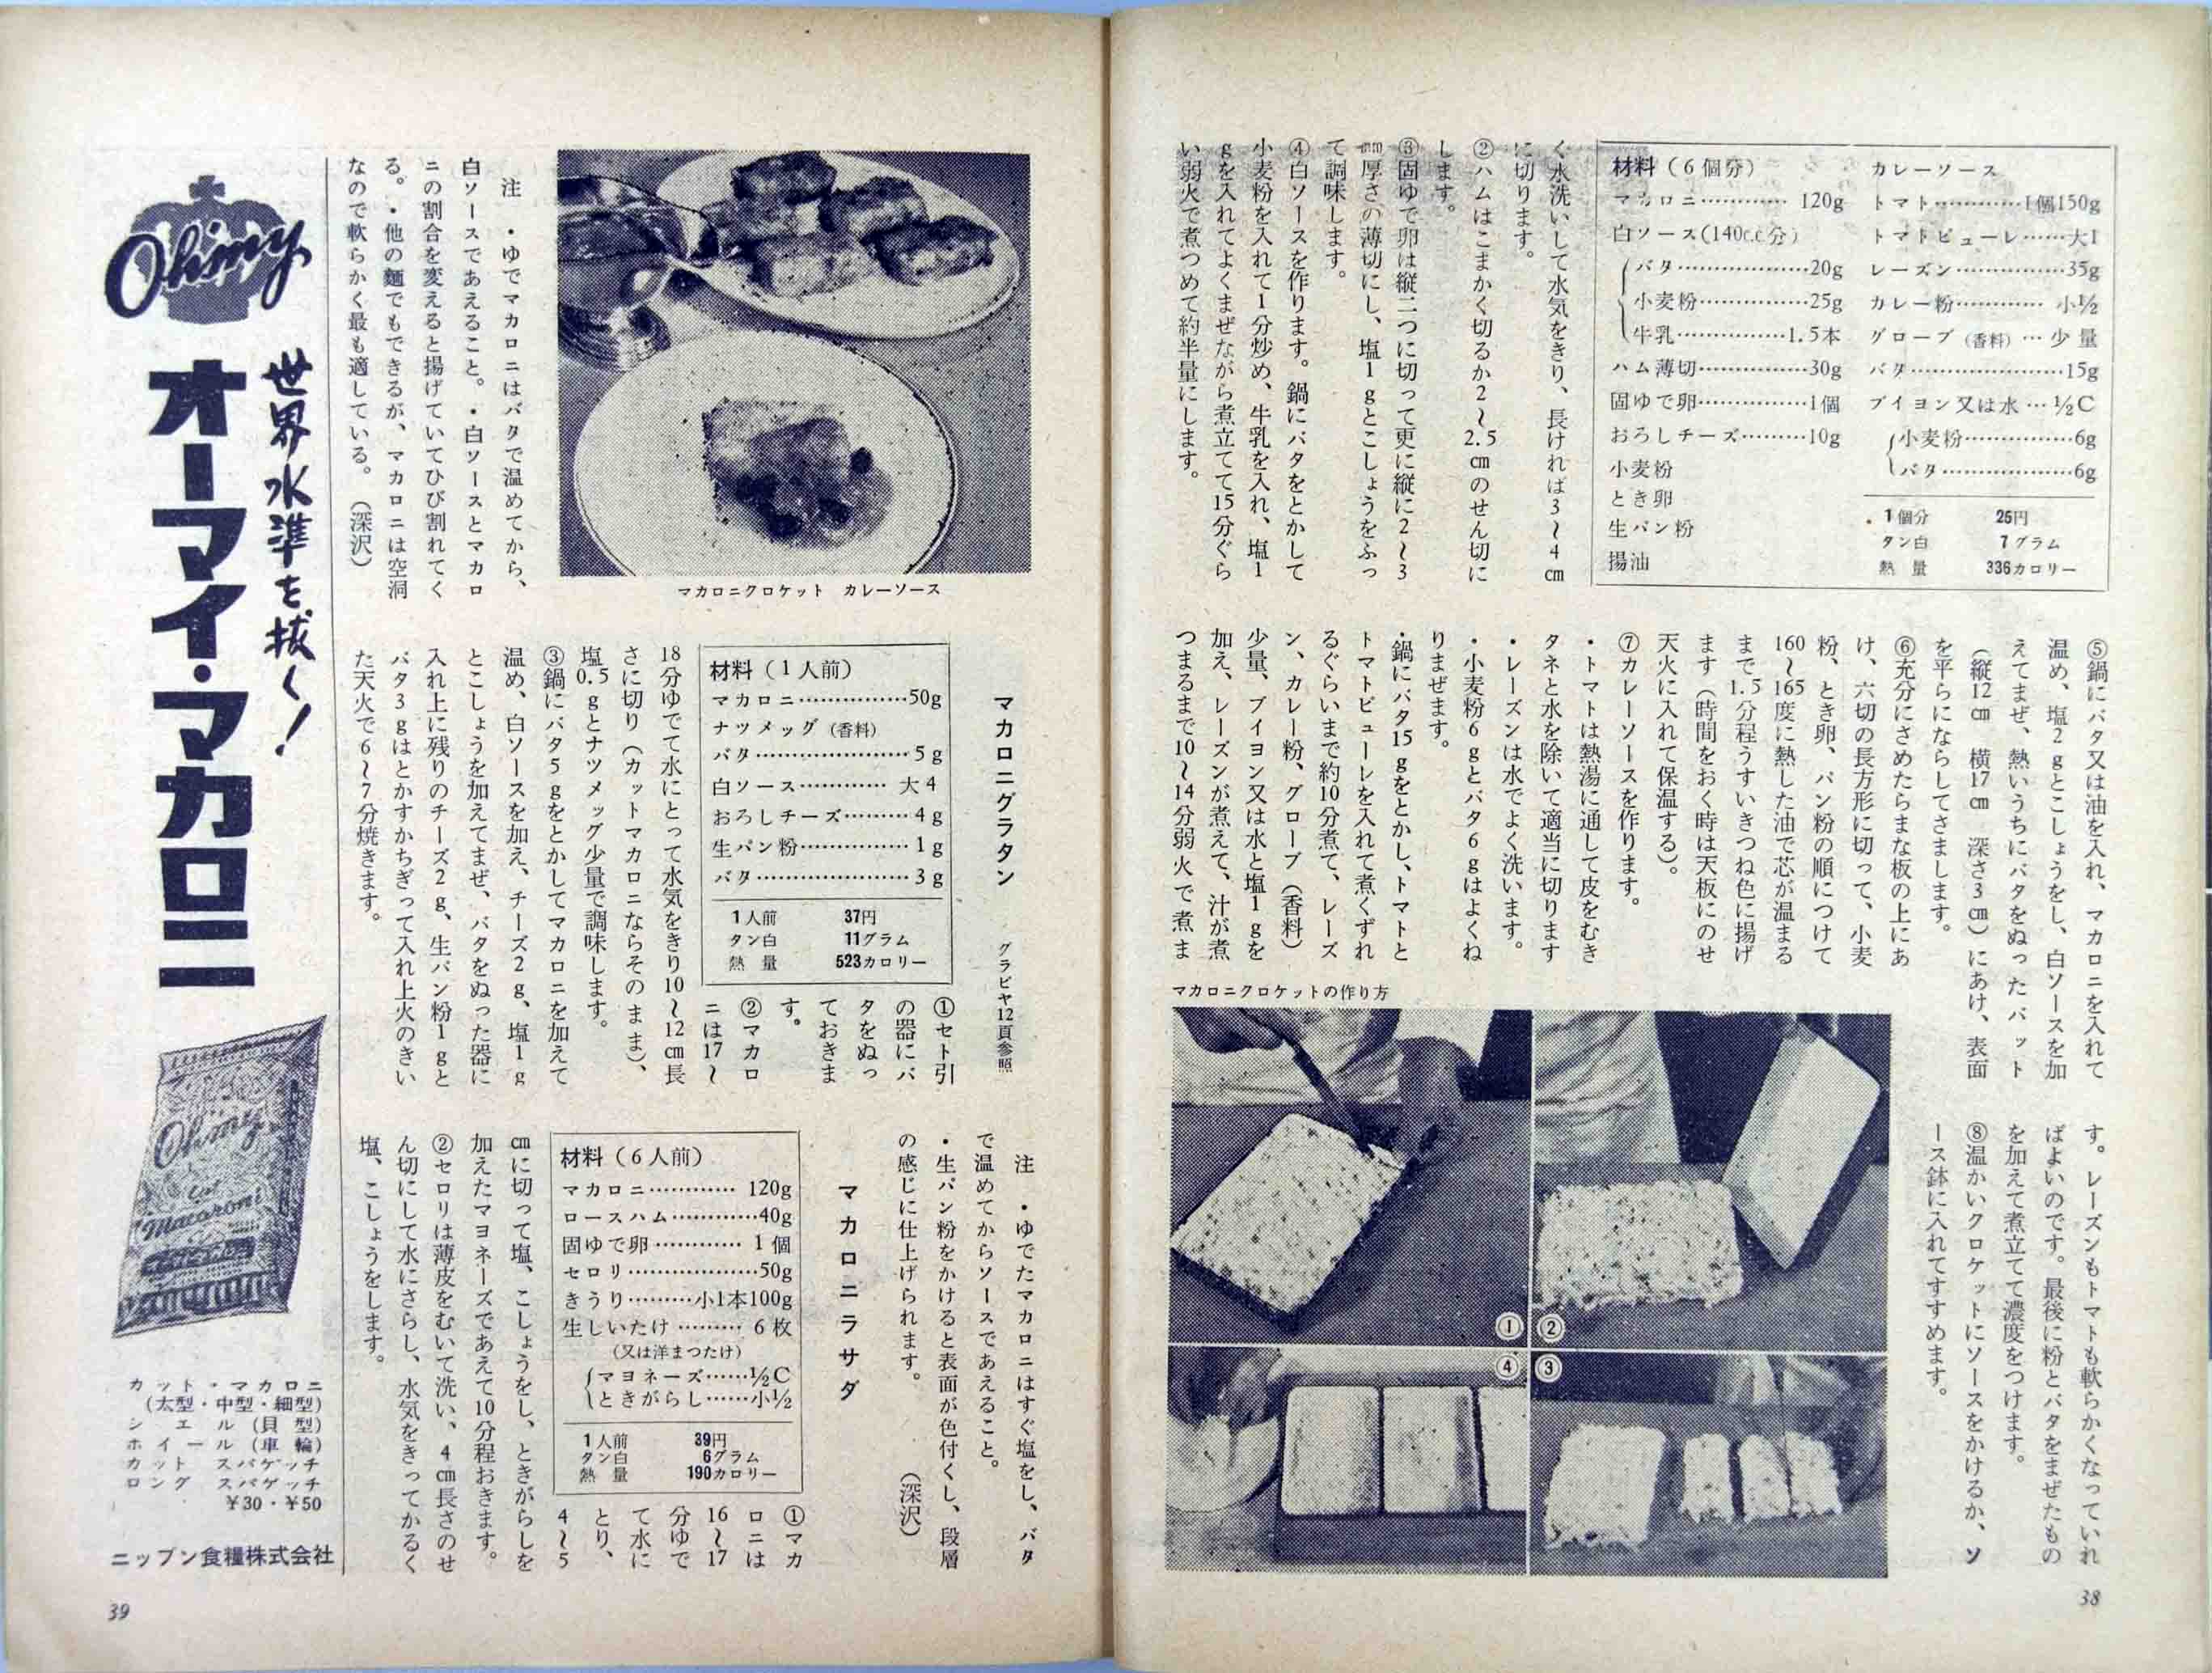 材料（6個分）
マカロニ………… 120g
白ソース(140c.c分)
バタ……………20g
小麦粉……………25g
牛乳……………1.5本
ハム薄切……………30g
固ゆで卵……………1個
おろしチーズ………10g
小麦粉
とき卵
生パン粉
揚油
カレーソース
トマト…………1個150g
トマトピューレ……大1
レーズン……………35g
カレー粉………… 小½
グローブ（香料）… 少量
バタ…………………15g
ブイヨン又は水 … ½C
小麦粉……………6g
バタ………………6g
1個分 25円
タン白 7グラム
熱量 336カロリー
く水洗いして水気をきり、長ければ3〜4cm
に切ります。
②ハムはこまかく切るか2〜2.5cmのせん切に
します。
③固ゆで卵は縦二つに切って更に縦に2〜3
mm厚さの薄切にし、塩1gとこしょうをふっ
て調味します。
④白ソースを作ります。鍋にバタをとかして
小麦粉を入れて1分炒め、牛乳を入れ、塩1
gを入れてよくまぜながら煮立てて15分ぐら
い弱火で煮つめて約半量にします。
⑤鍋にバタ又は油を入れ、マカロニを入れて
温め、塩2gとこしょうをし、白ソースを加
えてまぜ、熱いうちにバタをぬったバット
（縦12cm 横17cm 深さ3cm）にあけ、表面
を平らにならしてさまします。
⑥充分にさめたらまな板の上にあ
け、六切の長方形に切って、小麦
粉、とき卵、パン粉の順につけて
160〜165度に熱した油で芯が温まる
まで1.5分程うすいきつね色に揚げ
ます（時間をおく時は天板にのせ
天火に入れて保温する）。
⑦カレーソースを作ります。
・トマトは熱湯に通して皮をむき
タネと水を除いて適当に切ります
・レーズンは水でよく洗います。
・小麦粉6gとバタ6gはよくね
りまぜます。
・鍋にバタ15gをとかし、トマトと
トマトピューレを入れて煮くずれ
るぐらいまで約10分煮て、レーズ
ン、カレー粉、グローブ（香料）
少量、ブイヨン又は水と塩1gを
加え、レーズンが煮えて、汁が煮
つまるまで10〜14分弱火で煮ま
す。レーズンもトマトも軟らかくなっていれ
ばよいのです。最後に粉とバタをまぜたもの
を加えて煮立てて濃度をつけます。
⑧温かいクロケットにソースをかけるか、ソ
ース鉢に入れてすすめます。
マカロニクロケットの作り方
①
②
③
④
38
マカロニクロケット カレーソース
注 ・ゆでマカロニはバタで温めてから、
白ソースであえること。・白ソースとマカロ
ニの割合を変えると揚げていてひび割れてく
る。・他の麺でもできるが、マカロニは空洞
なので軟らかく最も適している。（深沢）
マカロニグラタン グラビヤ12頁参照
材料（1人前）
マカロニ……………50g
ナツメッグ（香料）
バタ…………………5g
白ソース………… 大4
おろしチーズ………4g
生パン粉……………1g
バタ…………………3g
1人前 37円
タン白 11グラム
熱量 523カロリー
①セト引
の器にバ
タをぬっ
ておきま
す。
②マカロ
ニは17〜
18分ゆでて水にとって水気をきり10〜12cm長
さに切り（カットマカロニならそのまま）、
塩0.5gとナツメッグ少量で調味します。
③鍋にバタ5gをとかしてマカロニを加えて
温め、白ソースを加え、チーズ2g、塩1g
とこしょうを加えてまぜ、バタをぬった器に
入れ上に残りのチーズ2g、生パン粉1gと
バタ3gはとかすかちぎって入れ上火のきい
た天火で6〜7分焼きます。
注 ・ゆでたマカロニはすぐ塩をし、バタ
で温めてからソースであえること。
・生パン粉をかけると表面が色付くし、段層
の感じに仕上げられます。（深沢）
マカロニラサダ
材料（6人前）
マカロニ………… 120g
ロースハム…………40g
固ゆで卵………… 1個
セロリ………………50g
きうり………小1本100g
生しいたけ ……… 6枚
（又は洋まつたけ）
マヨネーズ……½C
ときがらし……小½
1人前 39円
タン白 6グラム
熱量 190カロリー
①マカ
ロニは
16〜17
分ゆで
て水に
とり、
4〜5
cmに切って塩、こしょうをし、ときがらしを
加えたマヨネーズであえて10分程おきます。
②セロリは薄皮をむいて洗い、4cm長さのせ
ん切にして水にさらし、水気をきってかるく
塩、こしょうをします。
Ohmy
世界水準を抜く！
オーマイ・マカロニ
Ohmy
Cut
Macaroni
カット・マカロニ
（太型・中型・細型）
シエル（貝型）
ホイール（車輪）
カット スパゲッチ
ロング スパゲッチ
￥30・￥50
ニップン食糧株式会社
39